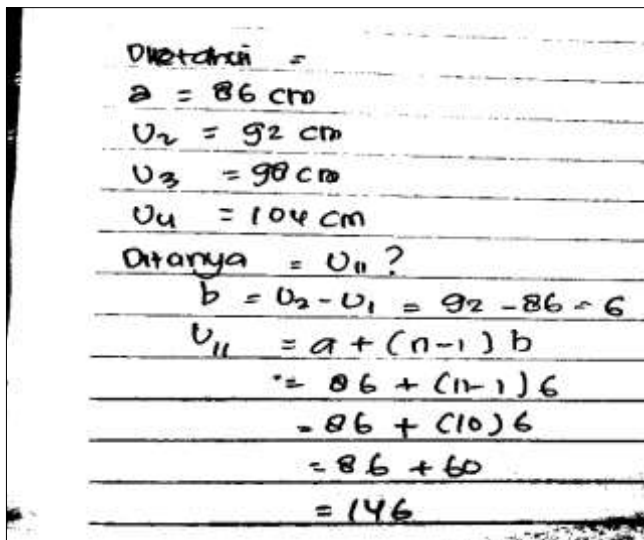 Diketahui =
a = 86 cm
U2 = 92 cm
U3 = 98 cm
U4 = 104 cm
Ditanya = U11 ?
b = U2 - U1 = 92 - 86 = 6
U11 = a + (n-1) b
= 86 + (11-1) 6
= 86 + (10) 6
= 86 + 60
= 146